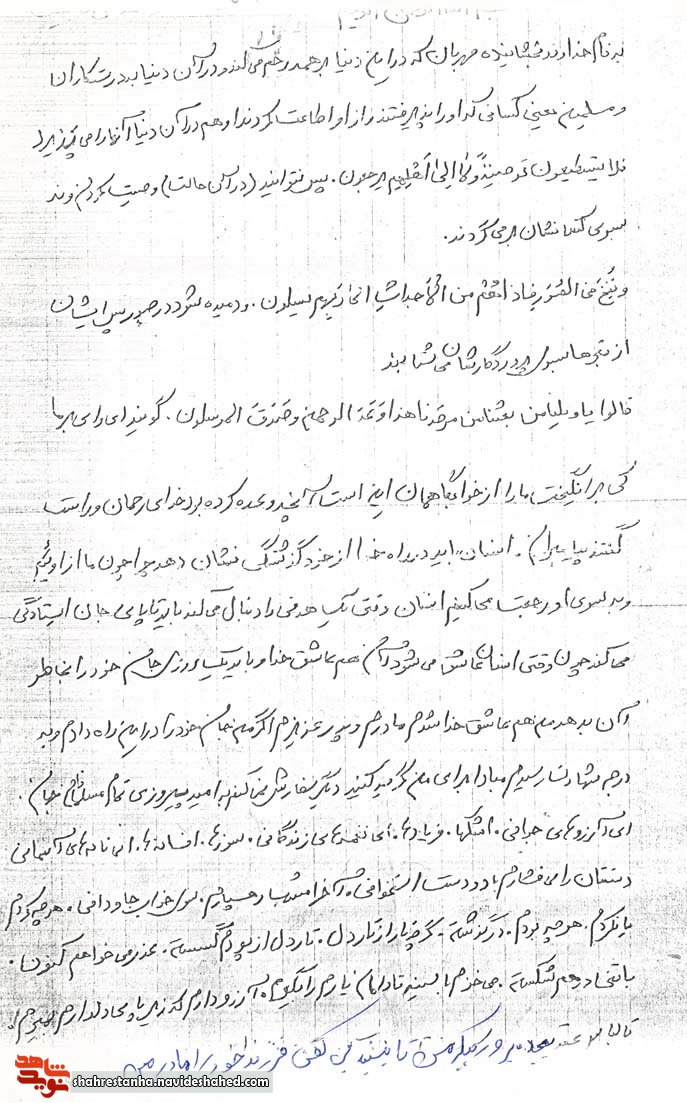 به نام خداوند بخشاینده مهربان که در این دنیا بر همه رحم می‌کند و در آن دنیا بدرستکاران
و مسلمین یعنی کسانی که او را پذیرفتند و از او اطاعت کردند او هم در آن دنیا آنها را می پذیرد
فلا یستطیعون توصیةً ولا الی اهلهم یرجعون. پس نتوانید (در آن حالت) وصیت کردن و نه
بسوی کسانشان بر می گردند.
و نفخ فی الصور فاذا هم من الاجداث الی ربهم ینسلون. و دمیده شود در صور پس ایشان
از قبرها بسوی پروردگارشان می شتابند
قالوا یا ویلنا من بعثنا من مرقدنا هذا ما وعد الرحمن و صدق المرسلون. گویند ای وای بر ما
کی برانگیخت ما را از خوابگاهمان این است آنچه وعده کرده بود خدای رحمان و راست
گفتند پیامبران. انسان باید در راه خدا از خود گذشتگی نشان دهد چون ما از اوئیم
و به سوی او رجعت میکنیم انسان وقتی یک هدفی را دنبال می‌کند باید تا پای جان ایستادگی
می کند چون وقتی انسان عاشق می شود آن هم عاشق خدا و باید یک روزی جان خود را بخاطر
آن بدهد من هم عاشق خدا شدم مادرم و پدر عزیزم اگر من جان خود را در این راه دادم و به
درجه شهادت رسیدم مبادا برای من گریه کنید دیگر سفارش نمی‌کنم به امید پیروزی تمام مسلمانان جهان.
ای آرزوهای جوانی. اشکها. فریادها. ای نغمه‌های زندگانی. سوزها. افسانه‌ها. ای ناله‌های آسمانی
دستتان را می فشارم با دو دست استخوانی. آخر امشب رهسپارم. سوی خواب جاودانی. هر چه کردم
یا نکردم. هر چه بودم. در گذشته - گرچه پا از تار دل. تار دل از پودم گسسته. عذر می خواهم کنون.
با تنی در هم شکسته. می خزم با سینه تا دامان یارم را بگیرم. آرزو دارم که زیر پای دلدارم بمیرم.
تا بینید کفن فرزند خود را مادر من
شاهد
نوید
shahrestanha.navideshahed.com